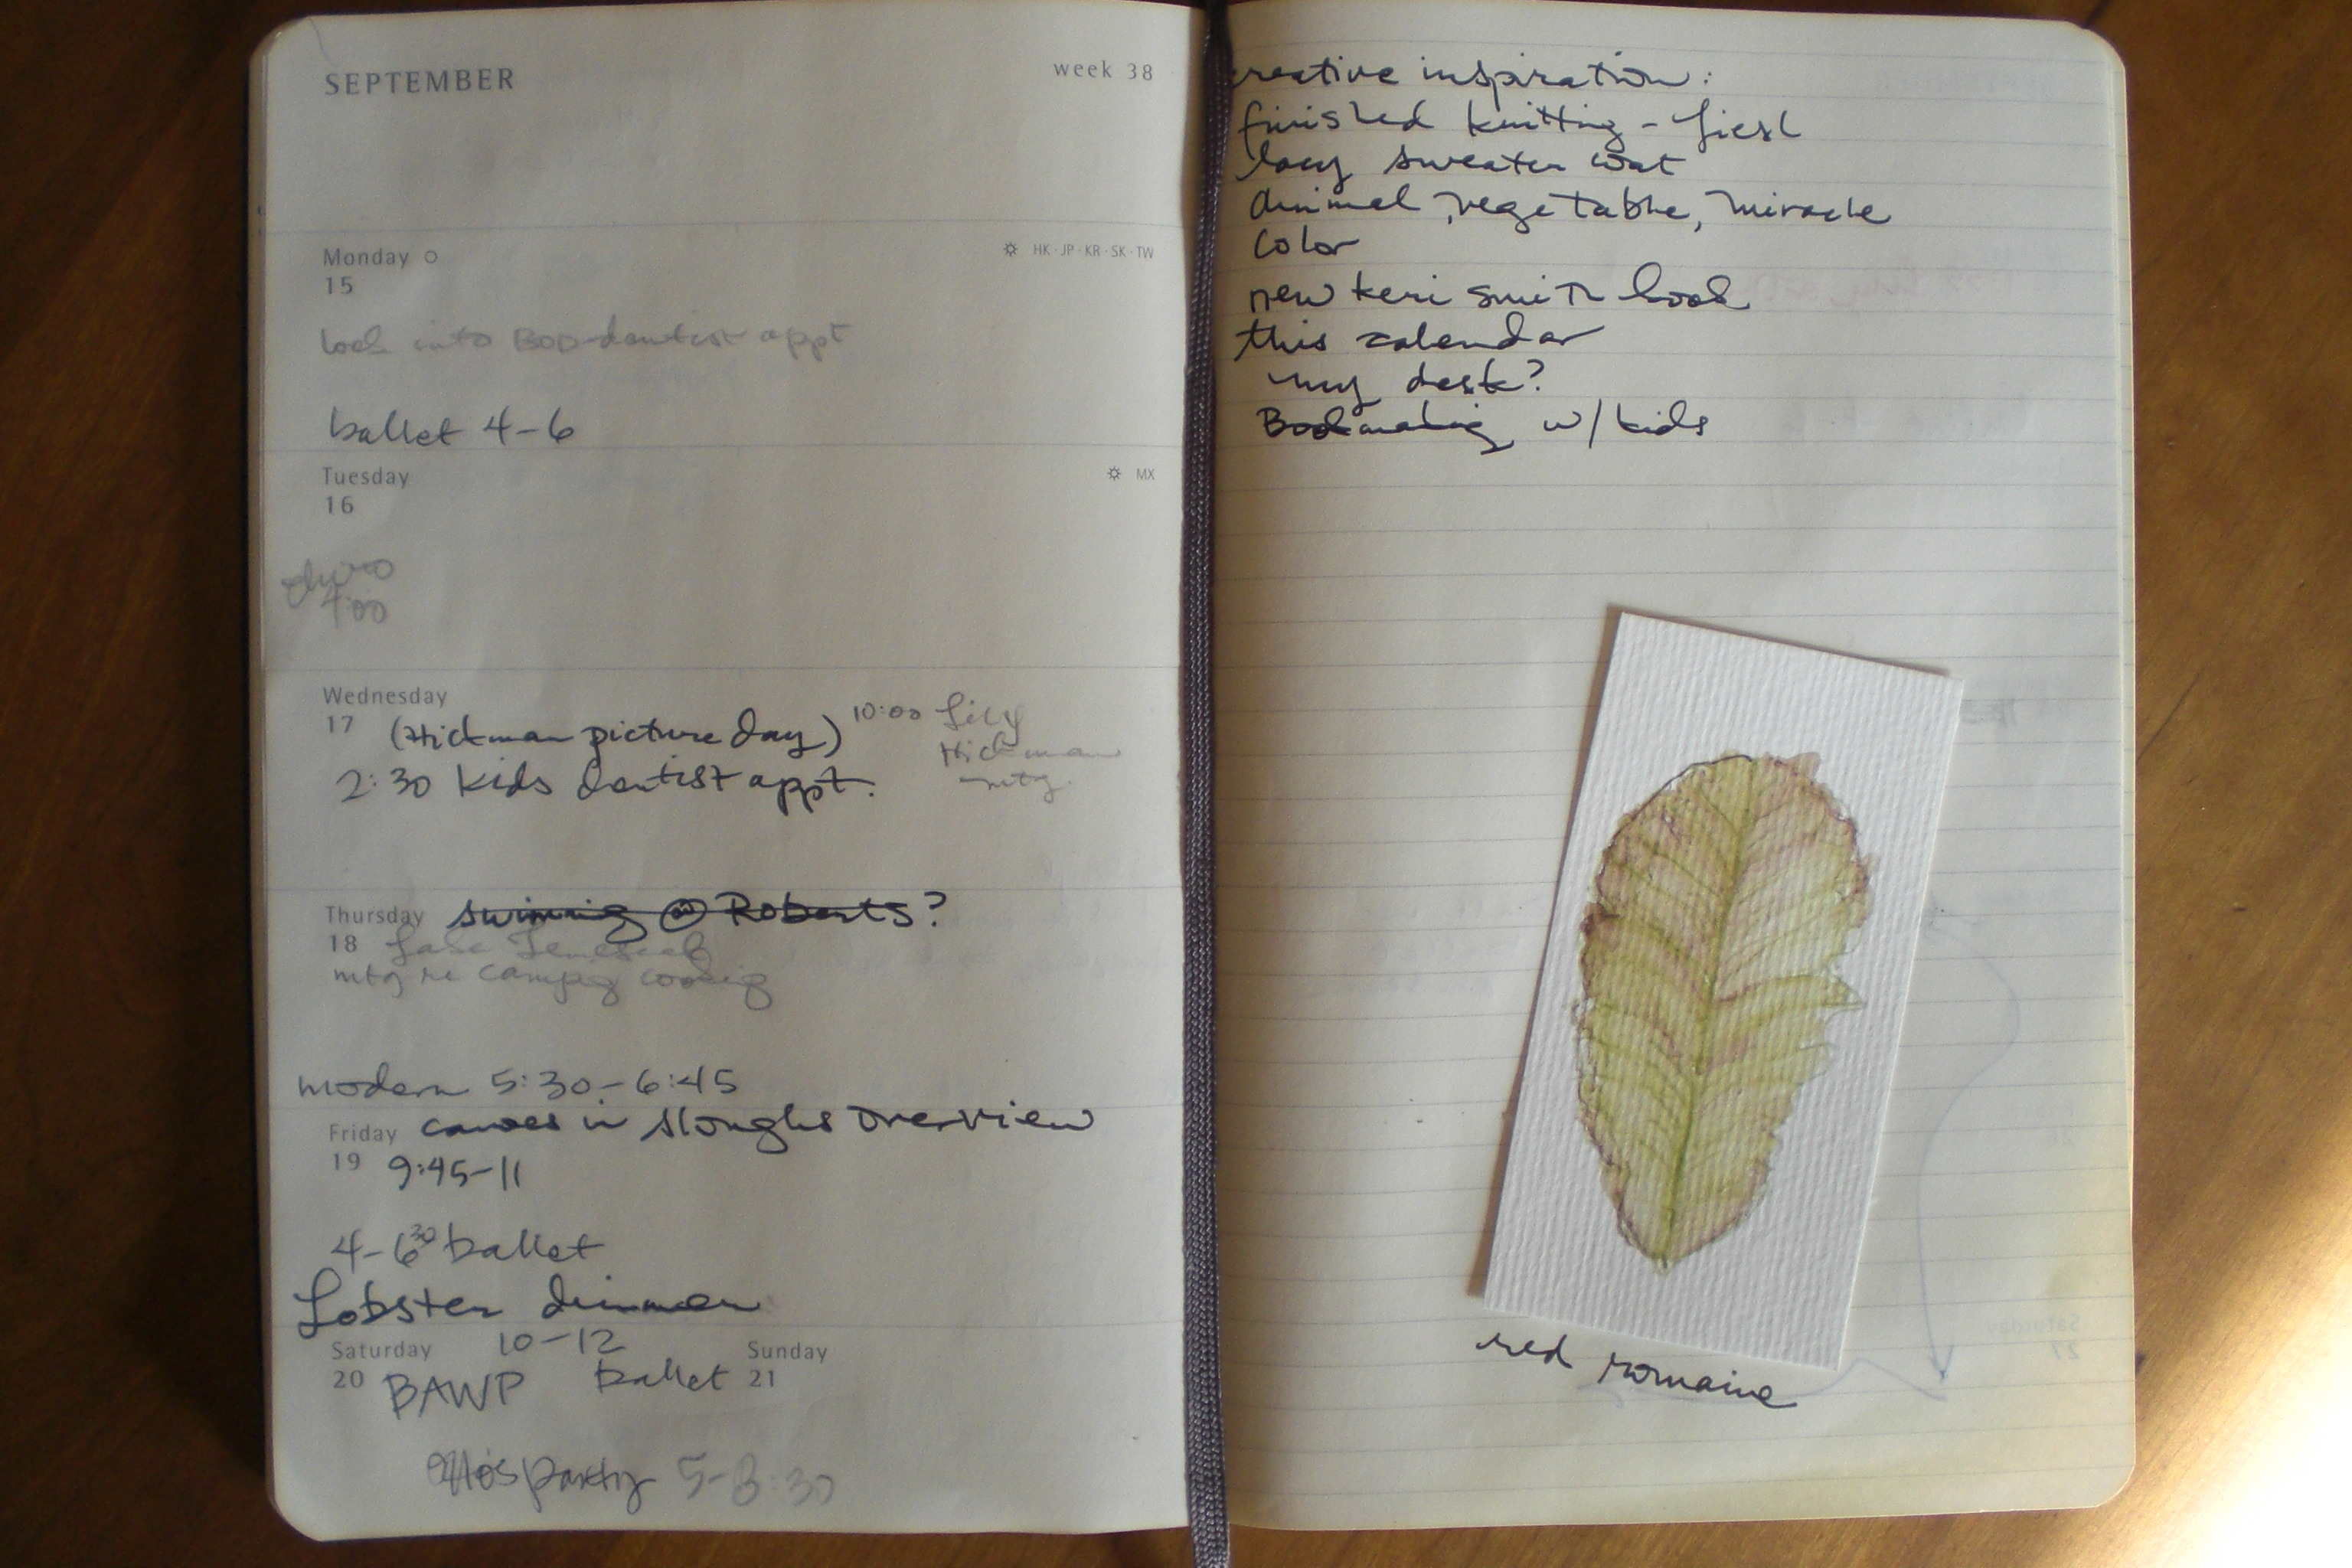 SEPTEMBER week 38
Monday HK·JP·KR·SK·TW
15
look into BOD dentist appt
ballet 4-6
Tuesday MX
16
4:00
Wednesday
17 (Hickman picture day) 10:00 Lily
Hickman
mtg.
2:30 kids dentist appt.
Thursday swimmig @ Roberts?
18
mtg re campig cookig
modern 5:30-6:45
Friday canoes in sloughs overview
19 9:45-11
4-6 30 ballet
Lobster dinner
Saturday 10-12 Sunday
20 BAWP ballet 21
Otto's party 5-8:30
creative inspiration:
finished knitting -
lacy sweater
animal, vegetable, miracle
color
new keri smith book
this calendar
my desk?
Bookmaking w/ kids
red romaine
Saturday
27